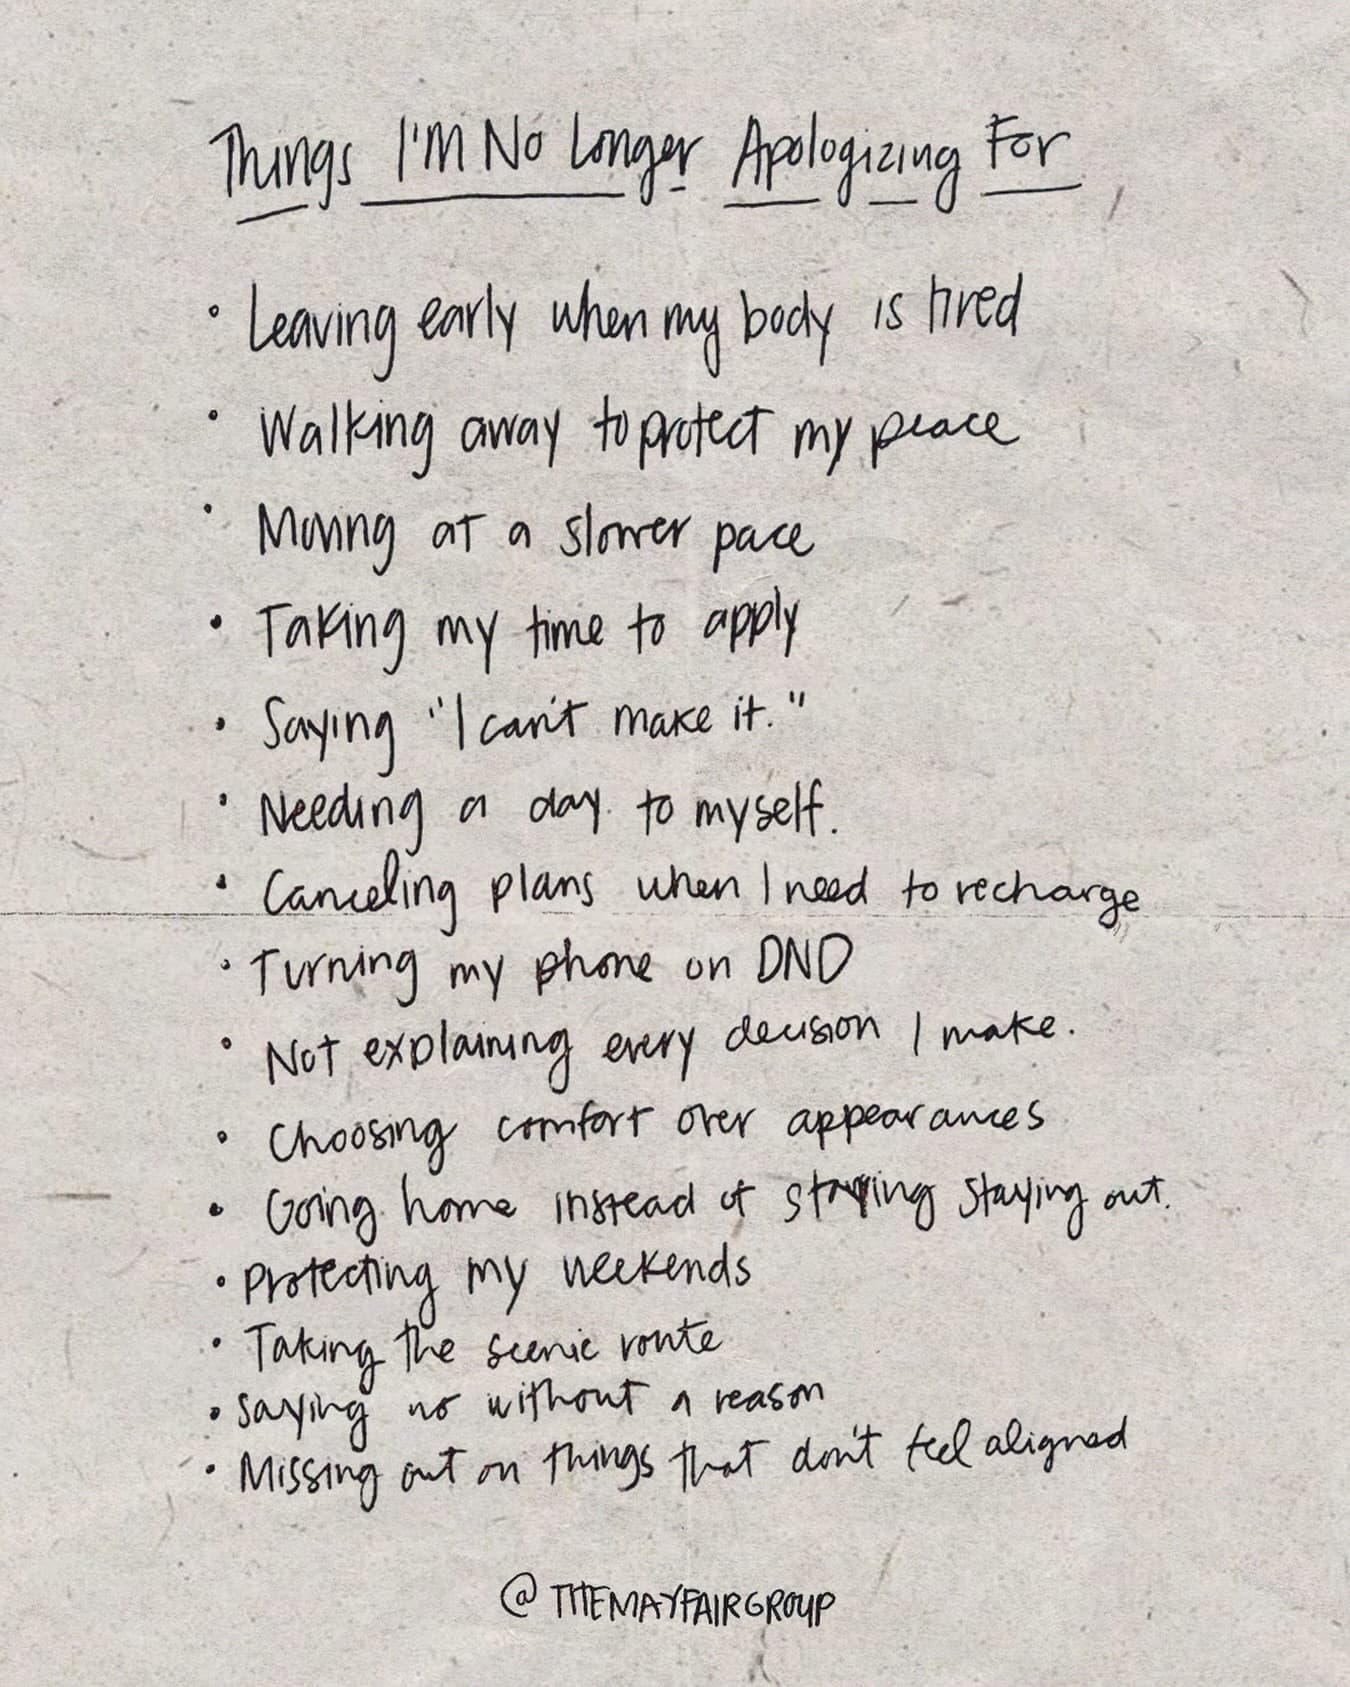 Things I'M No Longer Apologizing For
• Leaving early when my body is tired
• Walking away to protect my peace
• Moving at a slower pace
• Taking my time to apply
• Saying "I can't make it."
• Needing a day to myself.
• Canceling plans when I need to recharge
• Turning my phone on DND
• Not explaining every decision I make.
• Choosing comfort over appearances
• Going home instead of staying staying out.
• Protecting my weekends
• Taking the scenic route
• Saying no without a reason
• Missing out on things that don't feel aligned
@THEMAYFAIRGROUP